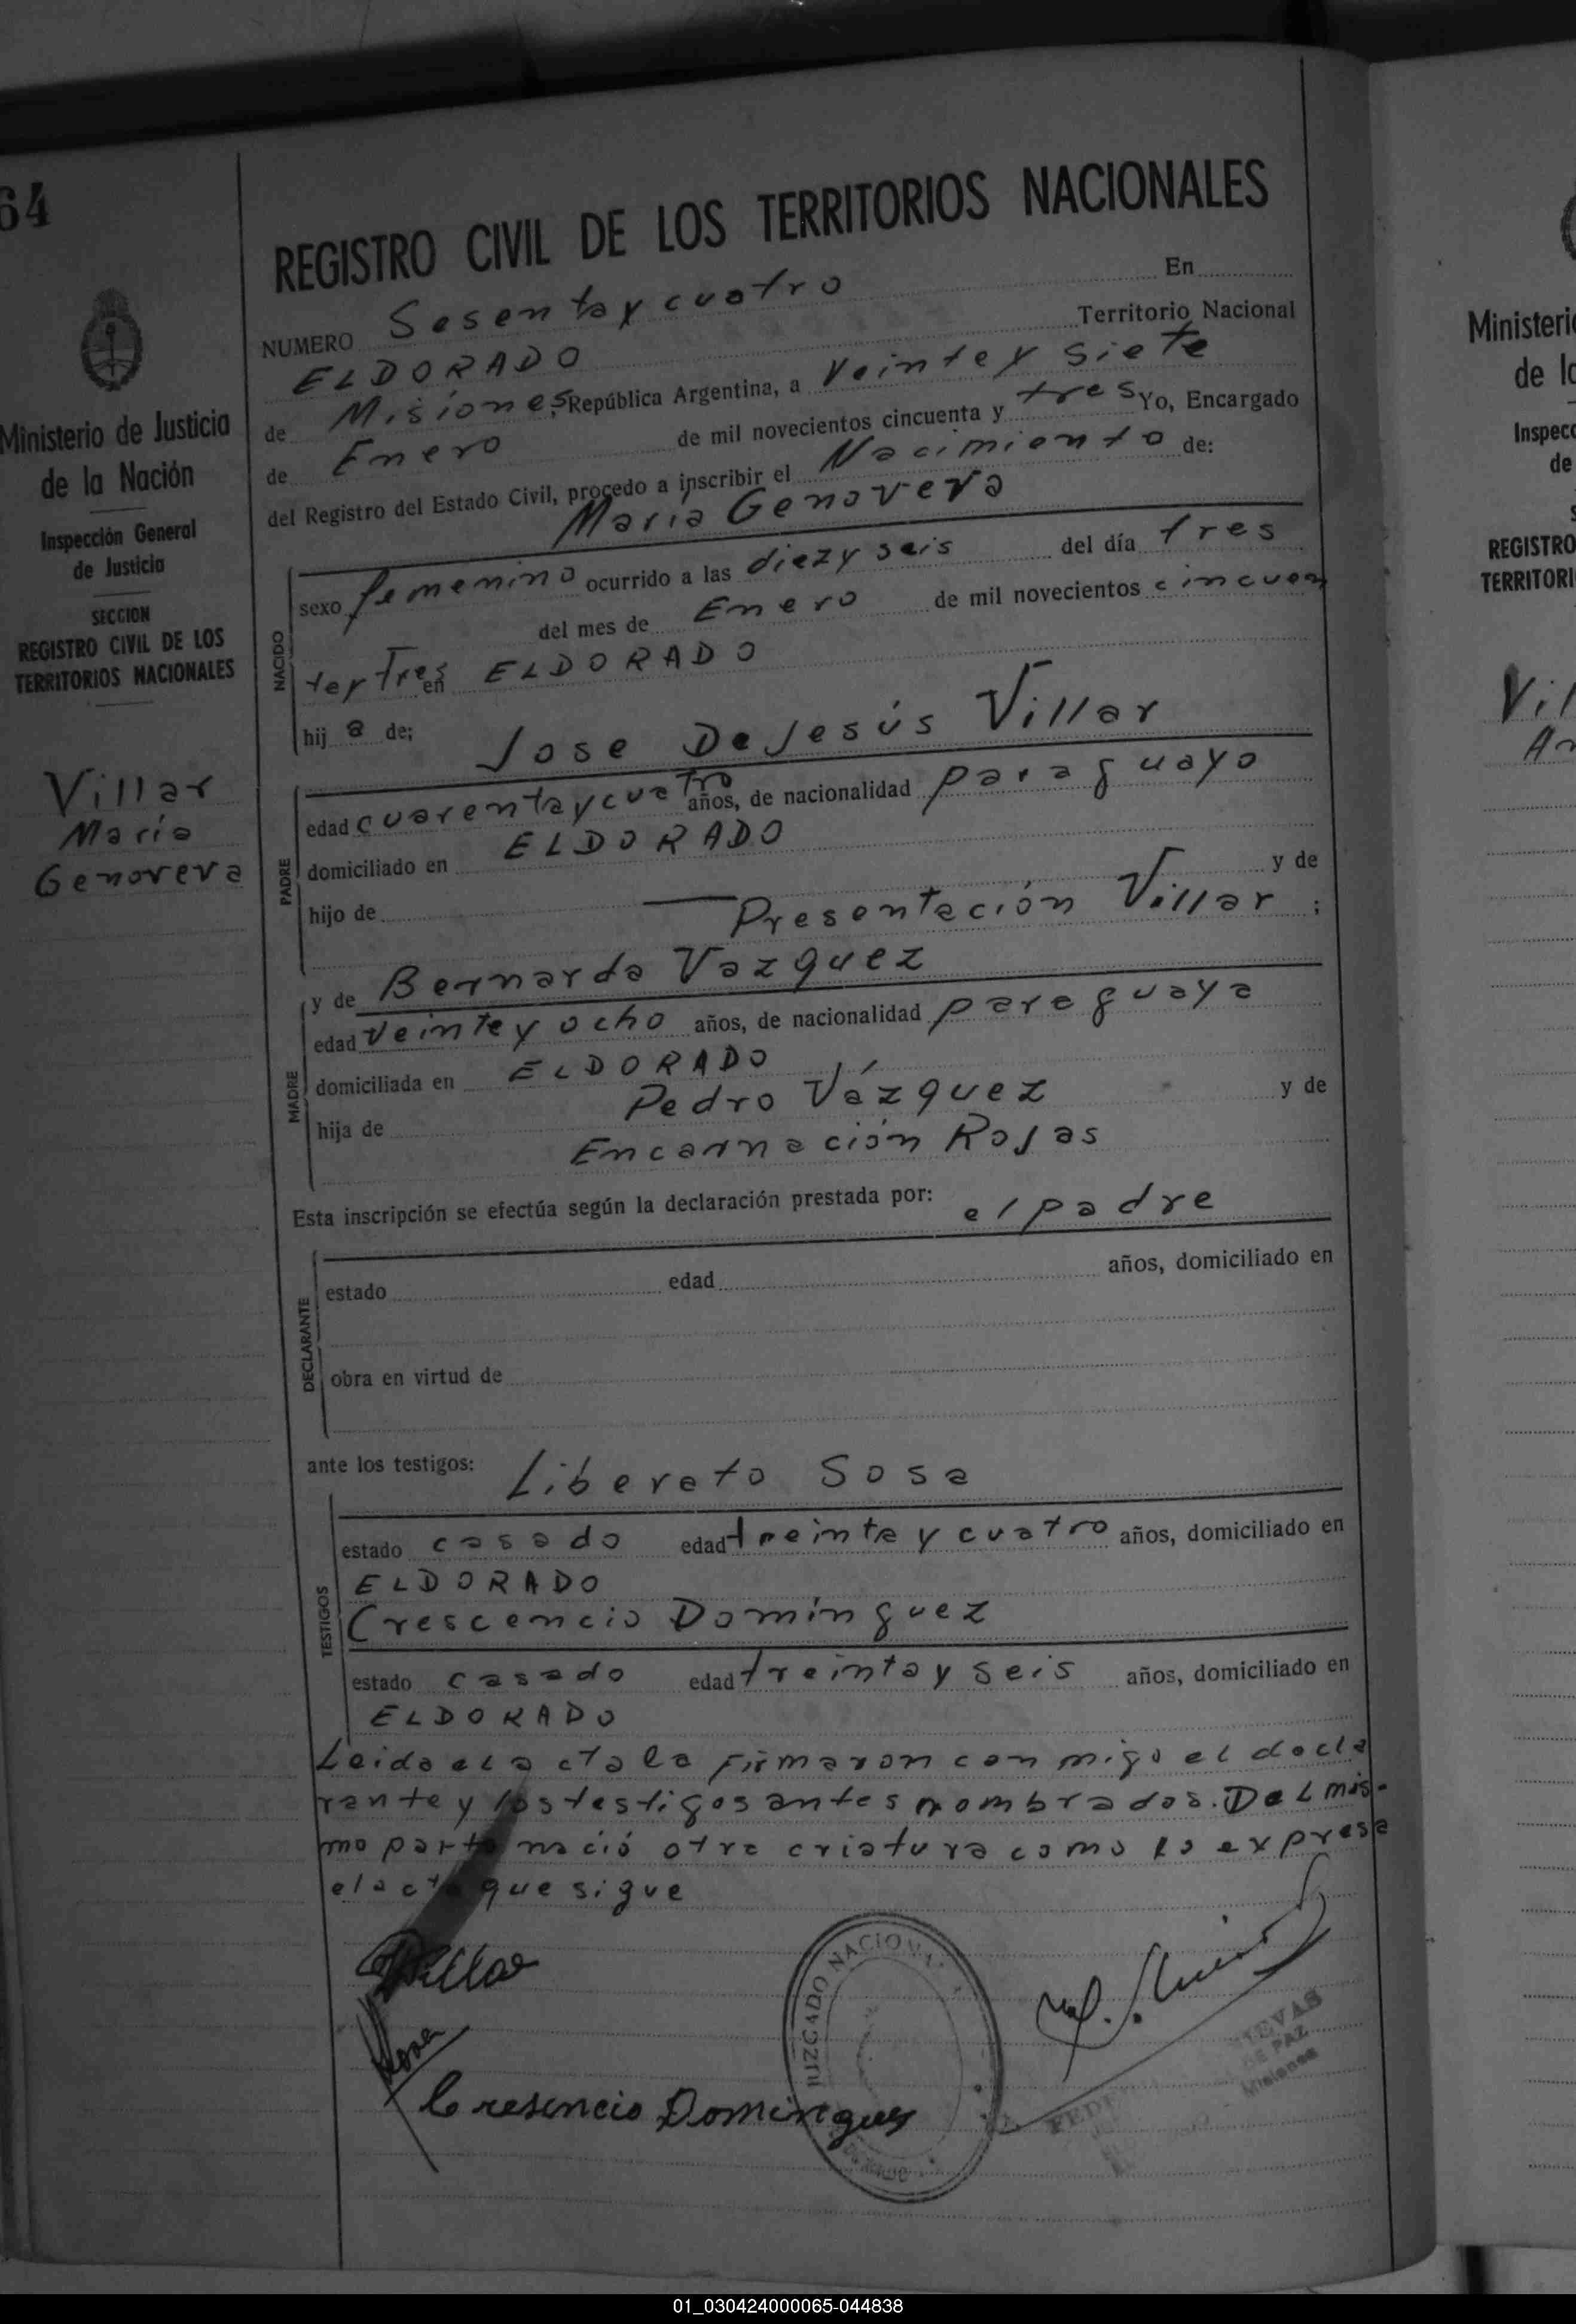 64
Ministerio de Justicia
de la Nación
Inspección General
de Justicia
SECCION
REGISTRO CIVIL DE LOS
TERRITORIOS NACIONALES
Villar
María
Genoveva
REGISTRO CIVIL DE LOS TERRITORIOS NACIONALES
NUMERO Sesenta y cuatro En
ELDORADO Territorio Nacional
de Misiones, República Argentina, a Veinte y siete
de Enero de mil novecientos cincuenta y tres Yo, Encargado
del Registro del Estado Civil, procedo a inscribir el Nacimiento de:
María Genoveva
NACIDO
sexo femenino ocurrido a las diez y seis del día tres
del mes de Enero de mil novecientos cincuen
ta y Tres en ELDORADO
hij a de; Jose De Jesús Villar
PADRE
edad cuarenta y cuatro años, de nacionalidad paraguayo
domiciliado en ELDORADO
hijo de y de
Presentación Villar ;
y de Bernarda Vazquez
MADRE
edad veinte y ocho años, de nacionalidad paraguaya
domiciliada en ELDORADO
hija de Pedro Vázquez y de
Encarnación Rojas
Esta inscripción se efectúa según la declaración prestada por: el padre
DECLARANTE
estado edad años, domiciliado en
obra en virtud de
ante los testigos: Liberato Sosa
TESTIGOS
estado casado edad treinta y cuatro años, domiciliado en
ELDORADO
Crescencio Domínguez
estado casado edad treinta y seis años, domiciliado en
ELDORADO
Leida el acta la firmaron conmigo el decla
rante y los testigos antes nombrados. Del mis-
mo parto nació otra criatura como lo expresa
el acta que sigue
Villar
Sosa
Cresencio Domingues
JUZGADO NACIONAL
DE PAZ
Misiones
Ministerio
de la
REGISTRO
TERRITORI
Vil
01_030424000065-044838